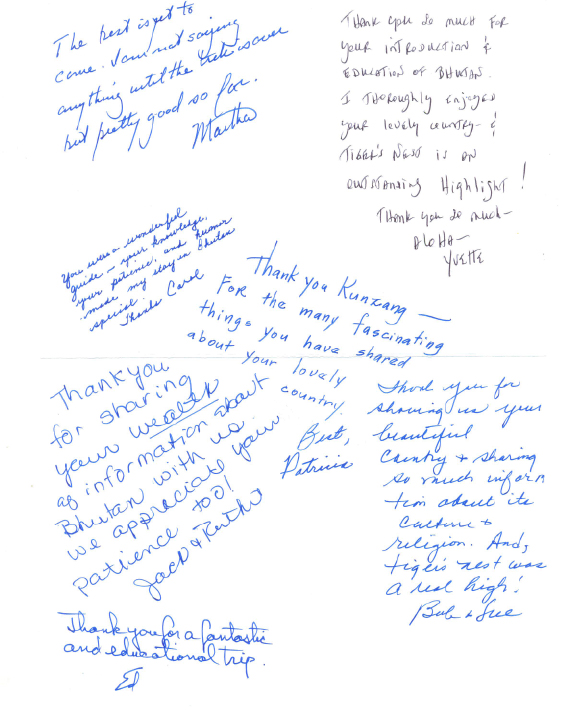 The best is yet to
come. I am not saying
anything until the trek is over
but pretty good so far.
Martha
THANK YOU SO MUCH FOR
YOUR INTRODUCTION &
EDUCATION OF BHUTAN.
I THOROUGHLY ENJOYED
YOUR LOVELY COUNTRY- &
TIGER'S NEST IS AN
OUTSTANDING HIGHLIGHT!
THANK YOU SO MUCH-
ALOHA-
YVETTE
You were a wonderful
guide - your knowledge,
your patience, and humor
made my stay in Bhutan
special.
Thanks Carol
Thank you Kunzang —
For the many fascinating
things you have shared
about your lovely
country.
Best,
Patricia
Thank you
for sharing
your wealth
of information about
Bhutan with us
we appreciate your
patience too!
Jack & Ruth
Thank you for
showing us your
beautiful
Country & sharing
so much inform
tion about its
Culture &
religion. And,
tiger's nest was
a real high!
Bob & Sue
Thank you for a fantastic
and educational trip.
Ed